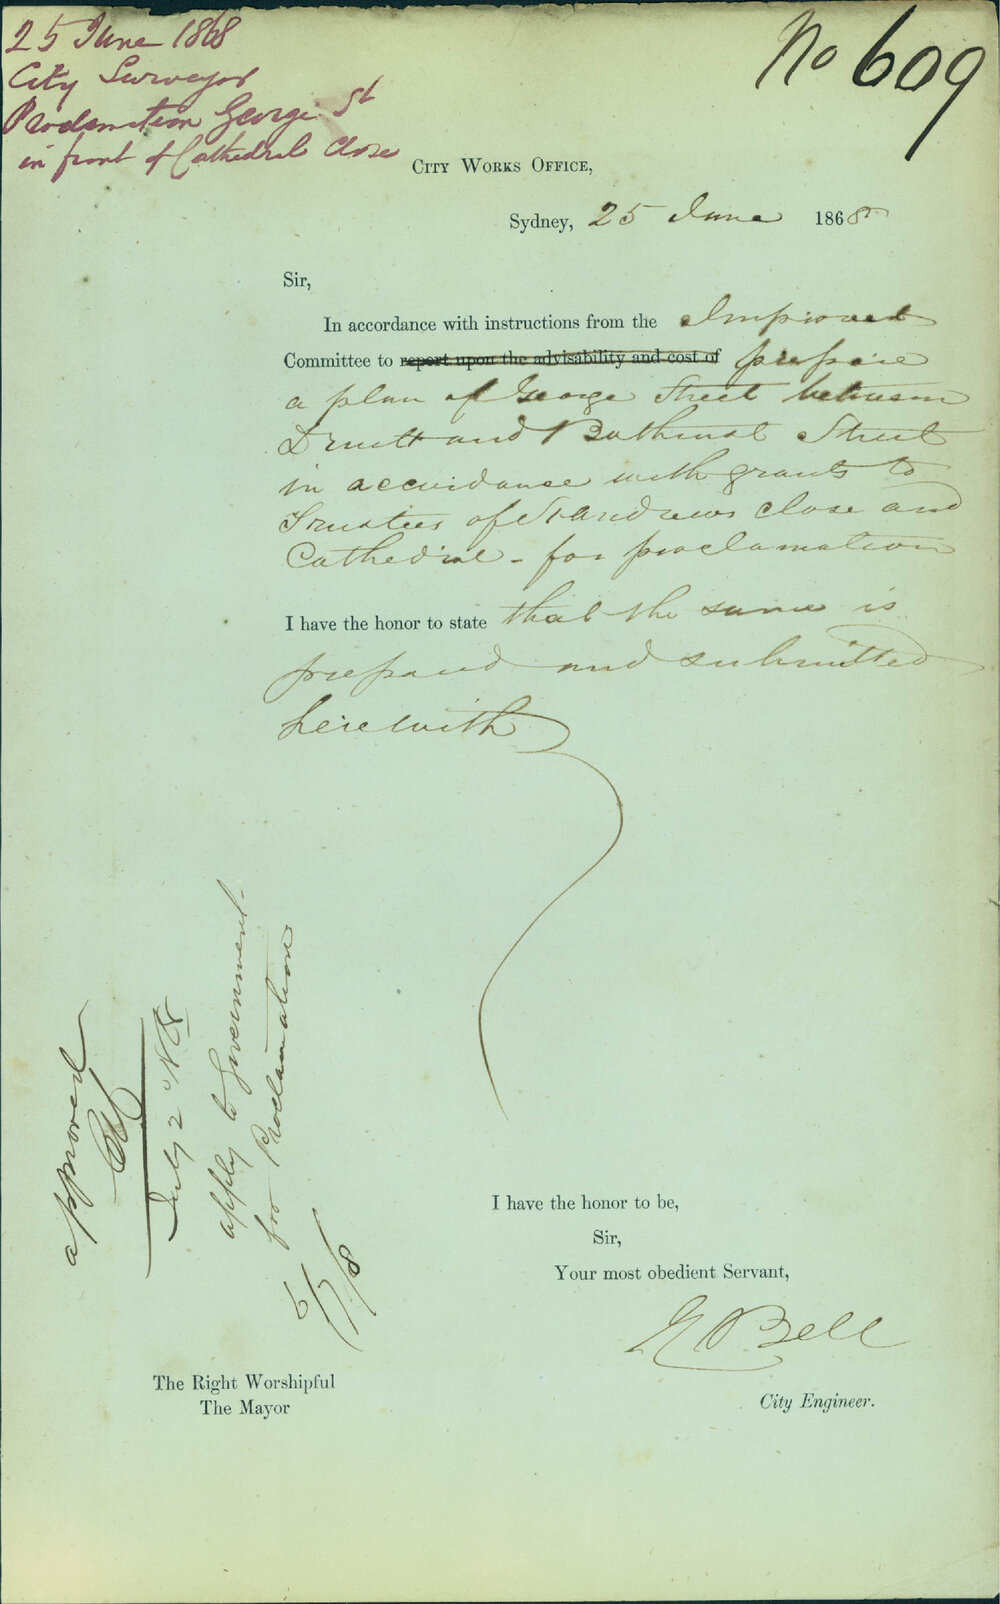 25 June 1868
City Surveyor
Proclamation George St
in front of Cathedral Close
No 609
City Works Office,
Sydney, 25 June 1868
Sir,
In accordance with instructions from the Improvet
Committee to report upon the advisability and cost of prepare
a plan of George Street between
Druitt and Bathurst Street
in accordance with grants to
Trustees of St Andrews close and
Cathedral - for proclamation
I have the honor to state that the same is
prepared and submitted
herewith
approved
July 2
apply to Government
for Proclamation
6/7/8
I have the honor to be,
Sir,
Your most obedient Servant,
E Bell
City Engineer.
The Right Worshipful
The Mayor